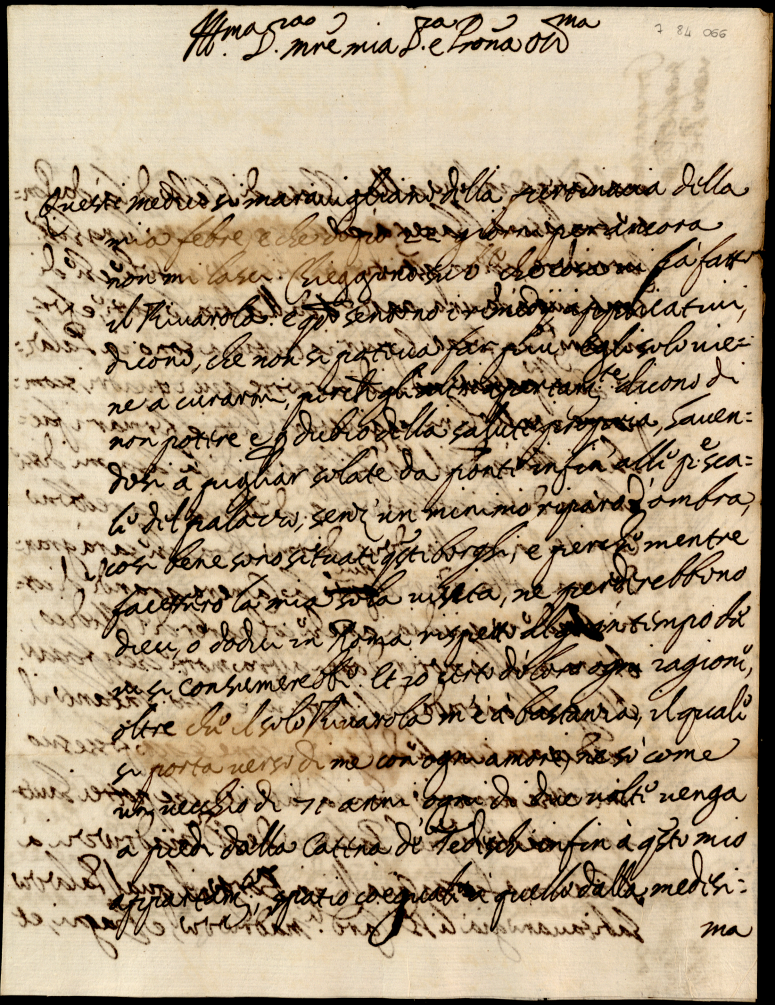 Ill.ma S.ra mrē mia S.ra e Pr̄ona oss.ma
7 84 066
Questi medici si maravigliano della pertinacia della
mia febre, e che dopo 22 giorni per ancora
non mi lasci. Chieggono che cosa mi ha fatto
il Rivarola: e q.do sentono i remedij applicativi,
dicono, che non si poteva far più. Egli solo vie=
ne a curarmi, perche gli altri dicono di
non potere e p dubio della salute propria, haven=
dosi à pigliar solate da ponti infin' alli p.i sca=
li del palazzo, senz' un minimo riparo d'ombra,
così bene sono situati q.sti borghi; e perche mentre
facessero la mia sola visita, ne perderebbono
dieci, o dodici in Roma rispetto al tempo che
vi si consumerebbe. Et io certo dò loro ogni ragione,
oltre che il solo Rivarola m'è à bastanza, il quale
si porta verso di me con ogni amore, ne sò come
un vecchio di 71 anni ogni dì due volte venga
a piedi dalla Catena de Tedeschi infin à q.sto mio
appartam.to, spatio coequale à quello dalla medesi=
ma